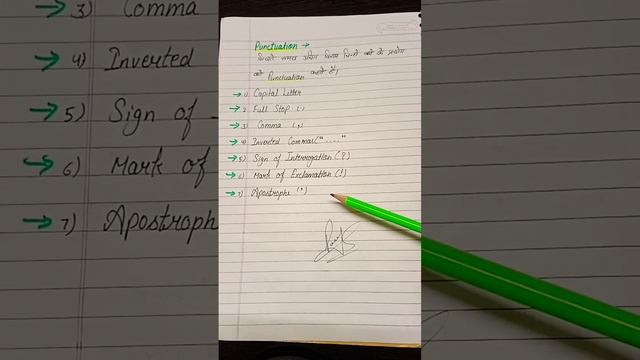 Punctuation →
लिखते समय उचित विराम चिन्हों के प्रयोग
को Punctuation कहते हैं।
→ 1) Capital Letter
→ 2) Full Stop (.)
→ 3) Comma (,)
→ 4) Inverted Commas("....")
→ 5) Sign of Interrogation (?)
→ 6) Mark of Exclamation (!)
→ 7) Apostrophe (')
→ 3) Comma
→ 4) Inverted
→ 5) Sign of
→ 6) Mark of
→ 7) Apostroph